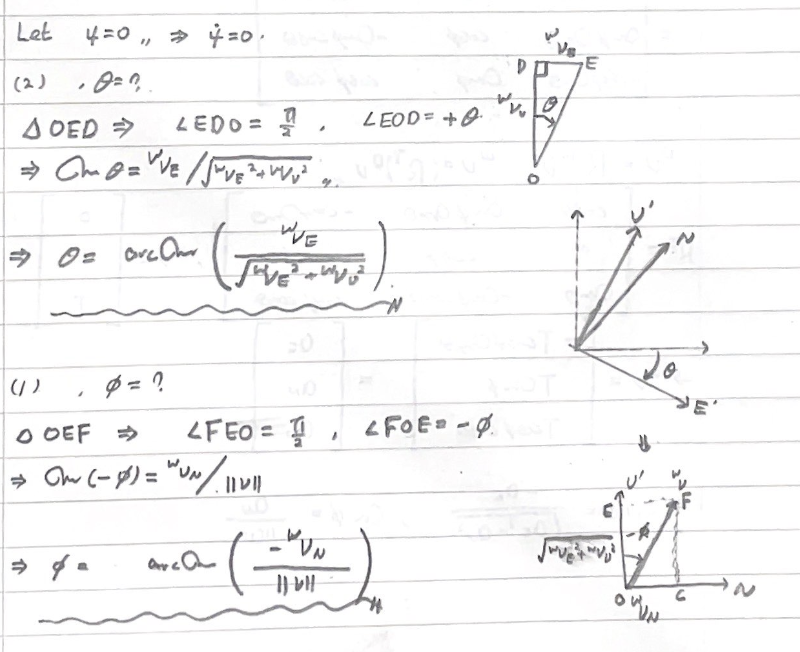 Let ψ=0 ,, ⇒ ψ̇=0.
(2) , θ=?
△OED ⇒ ∠EDO = π/2 , ∠EOD = +θ.
⇒ Sin θ = ᵂV_E / √(ᵂV_E² + ᵂV_U²) ,,
⇒ θ = arcSin ( ᵂV_E / √(ᵂV_E² + ᵂV_U²) )
(1) , φ=?
△OEF ⇒ ∠FEO = π/2 , ∠FOE = -φ.
⇒ Sin(-φ) = ᵂV_N / ||V||
⇒ φ = arcSin ( -ᵂV_N / ||V|| )
ᵂV_E
D E
ᵂV_U θ
O
U' N
θ
E'
⇓
U' ᵂV
E F
-φ
√(ᵂV_E² + ᵂV_U²)
O C N
ᵂV_N